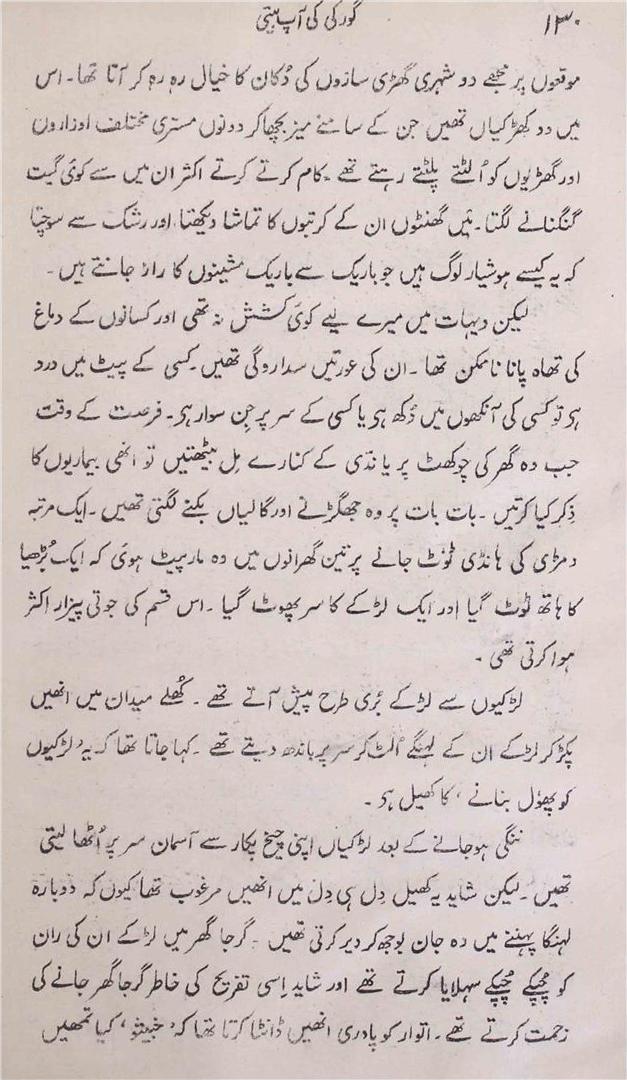 ۱۳۰
گورکی کی آپ بیتی
موقعوں پر مجھے دو شہری گھڑی سازوں کی دُکان کا خیال رہ رہ کر آتا تھا۔ اس
میں دو کھڑکیاں تھیں جن کے سامنے میز بچھا کر دونوں مستری مختلف اوزاروں
اور گھڑیوں کو اُلٹتے پلٹتے رہتے تھے۔ کام کرتے کرتے اکثر ان میں سے کوئی گیت
گنگنانے لگتا۔ میں گھنٹوں ان کے کرتبوں کا تماشا دیکھتا اور رشک سے سوچتا
کہ یہ کیسے ہوشیار لوگ ہیں جو باریک سے باریک مشینوں کا راز جانتے ہیں۔
لیکن دیہات میں میرے لیے کوئی کشش نہ تھی اور کسانوں کے دماغ
کی تھاہ پانا ناممکن تھا۔ ان کی عورتیں سدا روگی تھیں۔ کسی کے پیٹ میں درد
ہی تو کسی کی آنکھوں میں دُکھ ہی یا کسی کے سر پر جِن سوار ہی۔ فرصت کے وقت
جب وہ گھر کی چوکھٹ پر یا ندّی کے کنارے مِل بیٹھتیں تو انھی بیماریوں کا
ذِکر کیا کرتیں۔ بات بات پر وہ جھگڑنے اور گالیاں بکنے لگتی تھیں۔ ایک مرتبہ
دمڑی کی ہانڈی ٹوٹ جانے پر تین گھرانوں میں وہ مار پیٹ ہوئی کہ ایک بُڑھیا
کا ہاتھ ٹوٹ گیا اور ایک لڑکے کا سر پھوٹ گیا۔ اس قسم کی جوتی پیزار اکثر
ہوا کرتی تھی۔
لڑکیوں سے لڑکے بُری طرح پیش آتے تھے۔ کُھلے میدان میں انھیں
پکڑ کر لڑکے ان کے لہنگے اُلٹ کر سر پر باندھ دیتے تھے۔ کہا جاتا تھا کہ یہ ’لڑکیوں
کو پھول بنانے‘ کا کھیل ہی۔
ننگی ہو جانے کے بعد لڑکیاں اپنی چیخ پکار سے آسمان سر پر اُٹھا لیتی
تھیں۔ لیکن شاید یہ کھیل دِل ہی دِل میں انھیں مرغوب تھا کیوں کہ دوبارہ
لہنگا پہننے میں وہ جان بوجھ کر دیر کرتی تھیں۔ گرجا گھر میں لڑکے ان کی ران
کو چُپکے چُپکے سہلایا کرتے تھے اور شاید اِسی تفریح کی خاطر گرجا گھر جانے کی
زحمت کرتے تھے۔ اتوار کو پادری انھیں ڈانٹا کرتا تھا کہ ’خبیثو‘ کیا تمھیں